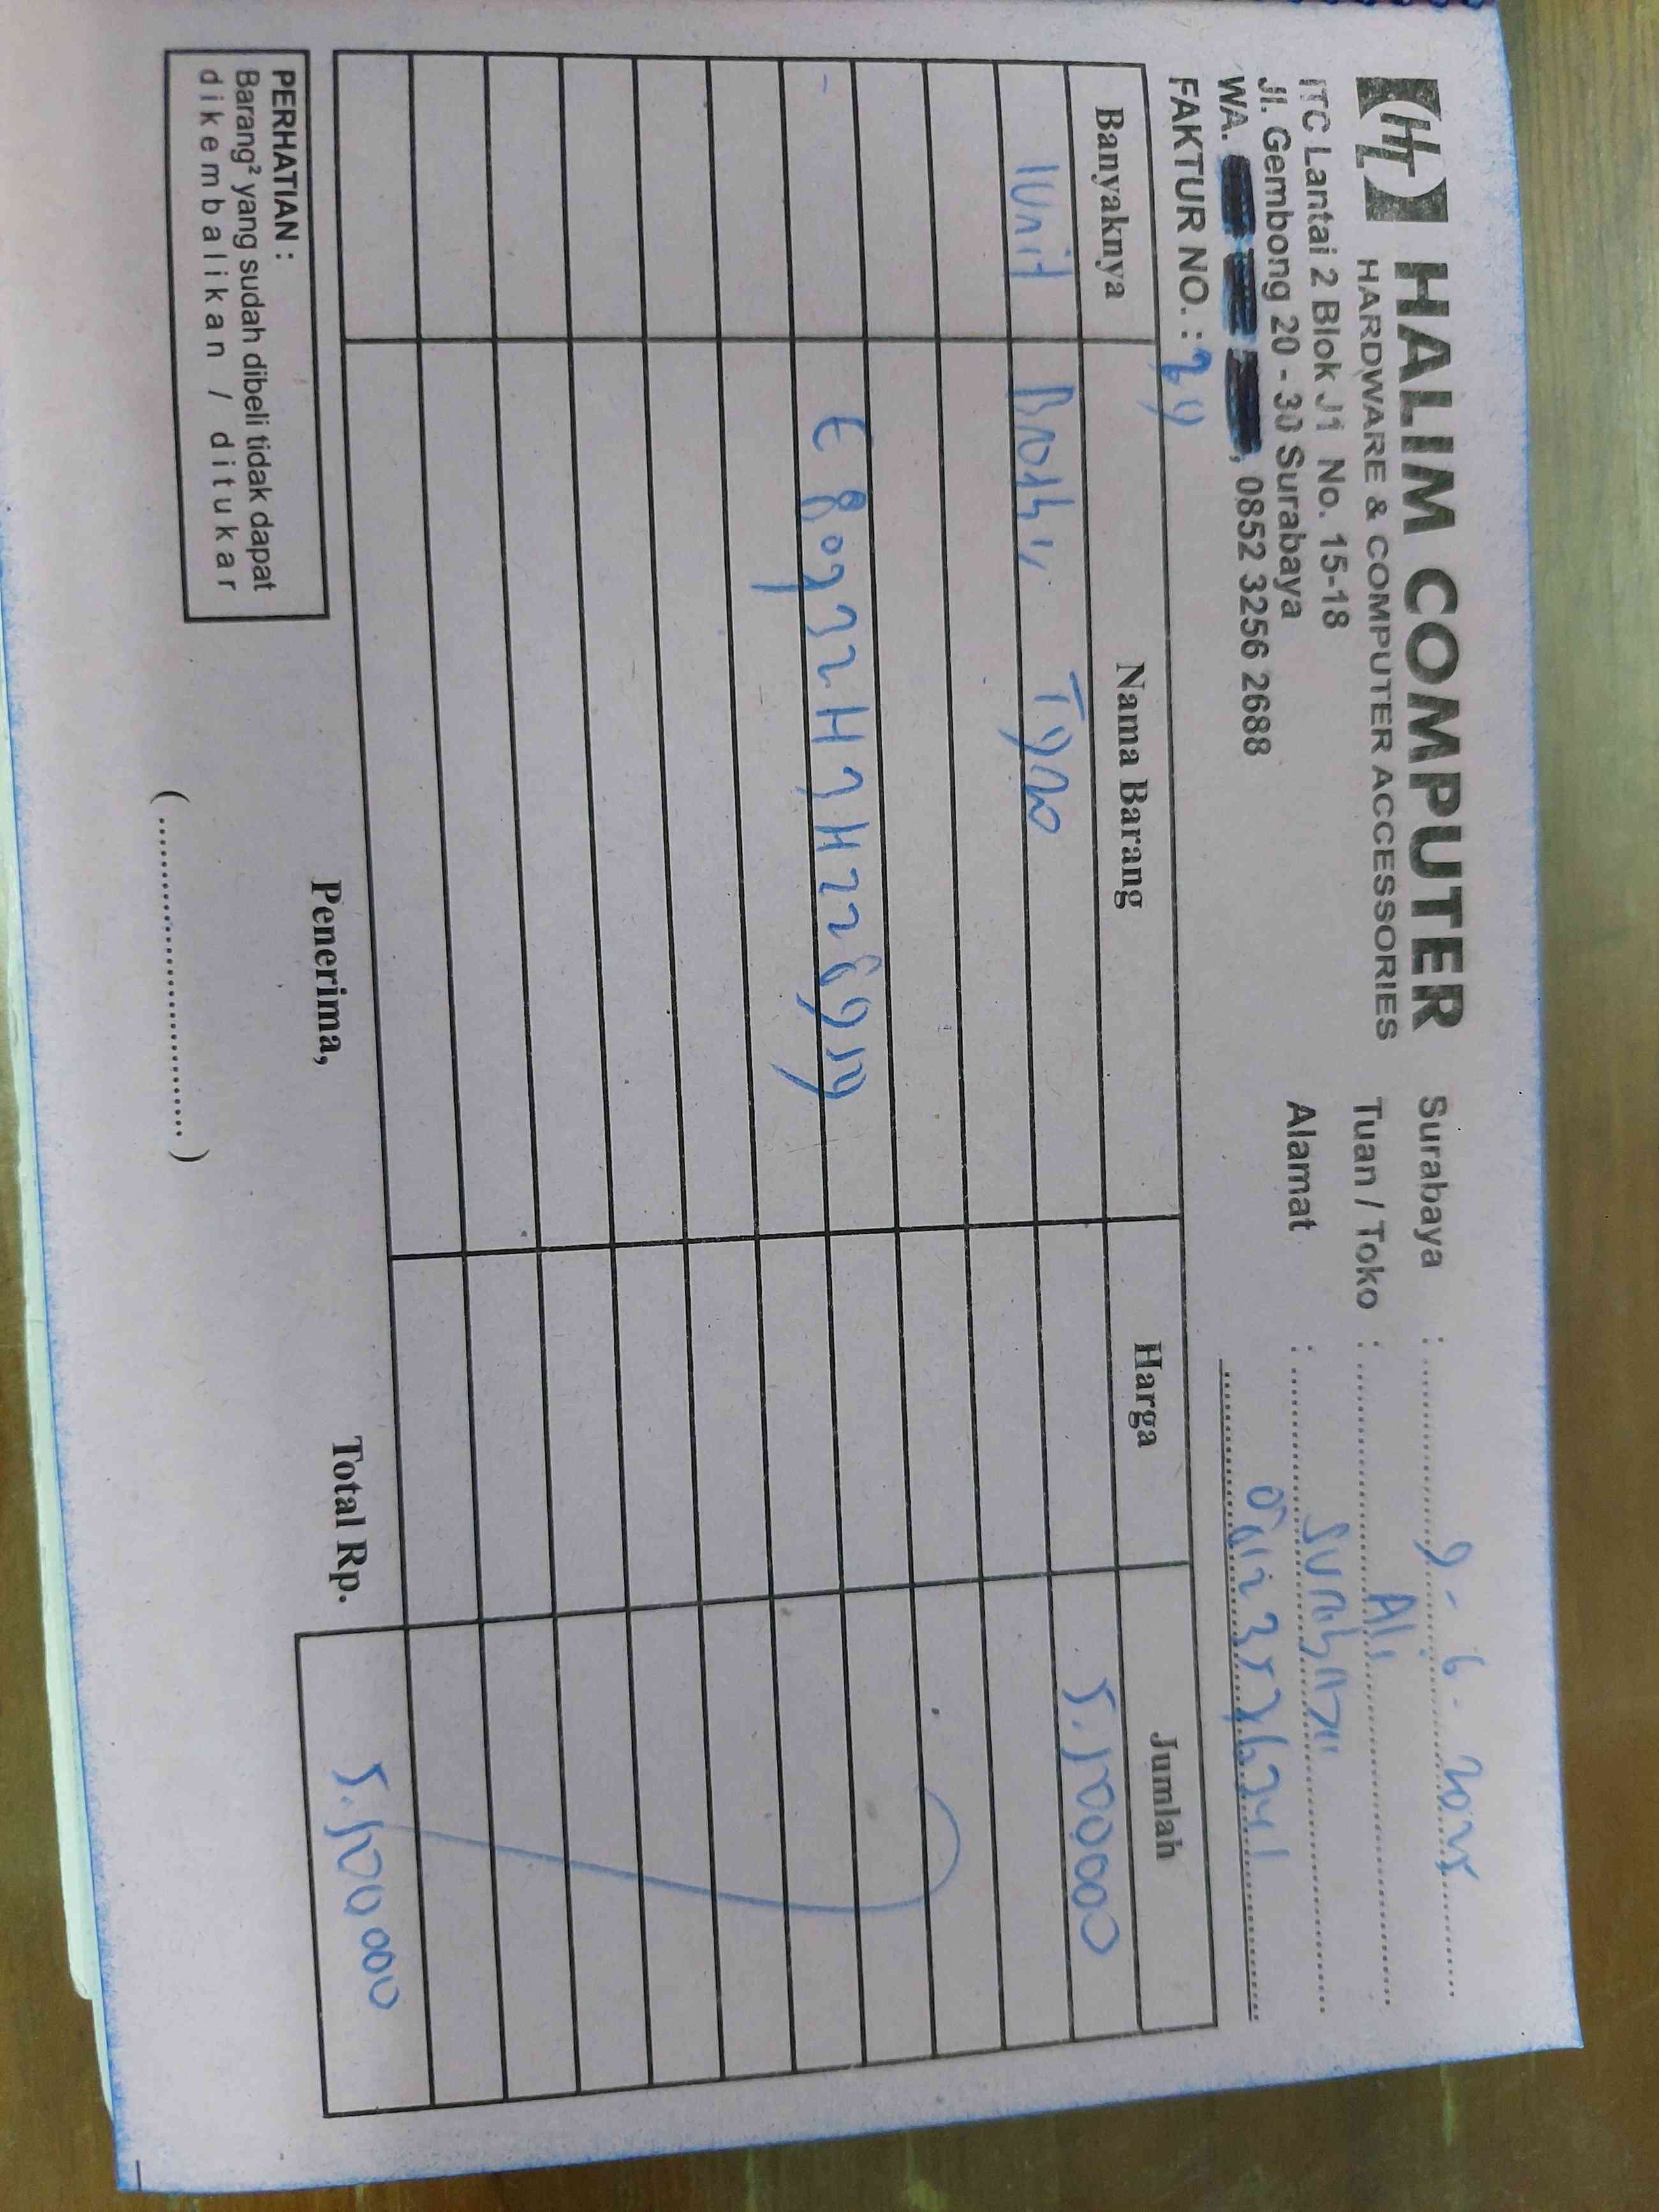 HT HALIM COMPUTER
HARDWARE & COMPUTER ACCESSORIES
ITC Lantai 2 Blok J1 No. 15-18
Jl. Gembong 20 - 30 Surabaya
WA. , 0852 3256 2688
FAKTUR NO. :
Surabaya : 9 - 6 - 2025
Tuan / Toko : Ali
Alamat : Surabaya
Banyaknya Nama Barang Harga Jumlah
1 Unit 5.500000
PERHATIAN :
Barang² yang sudah dibeli tidak dapat
dikembalikan / ditukar
Penerima,
Total Rp. 5.500000
(................................)